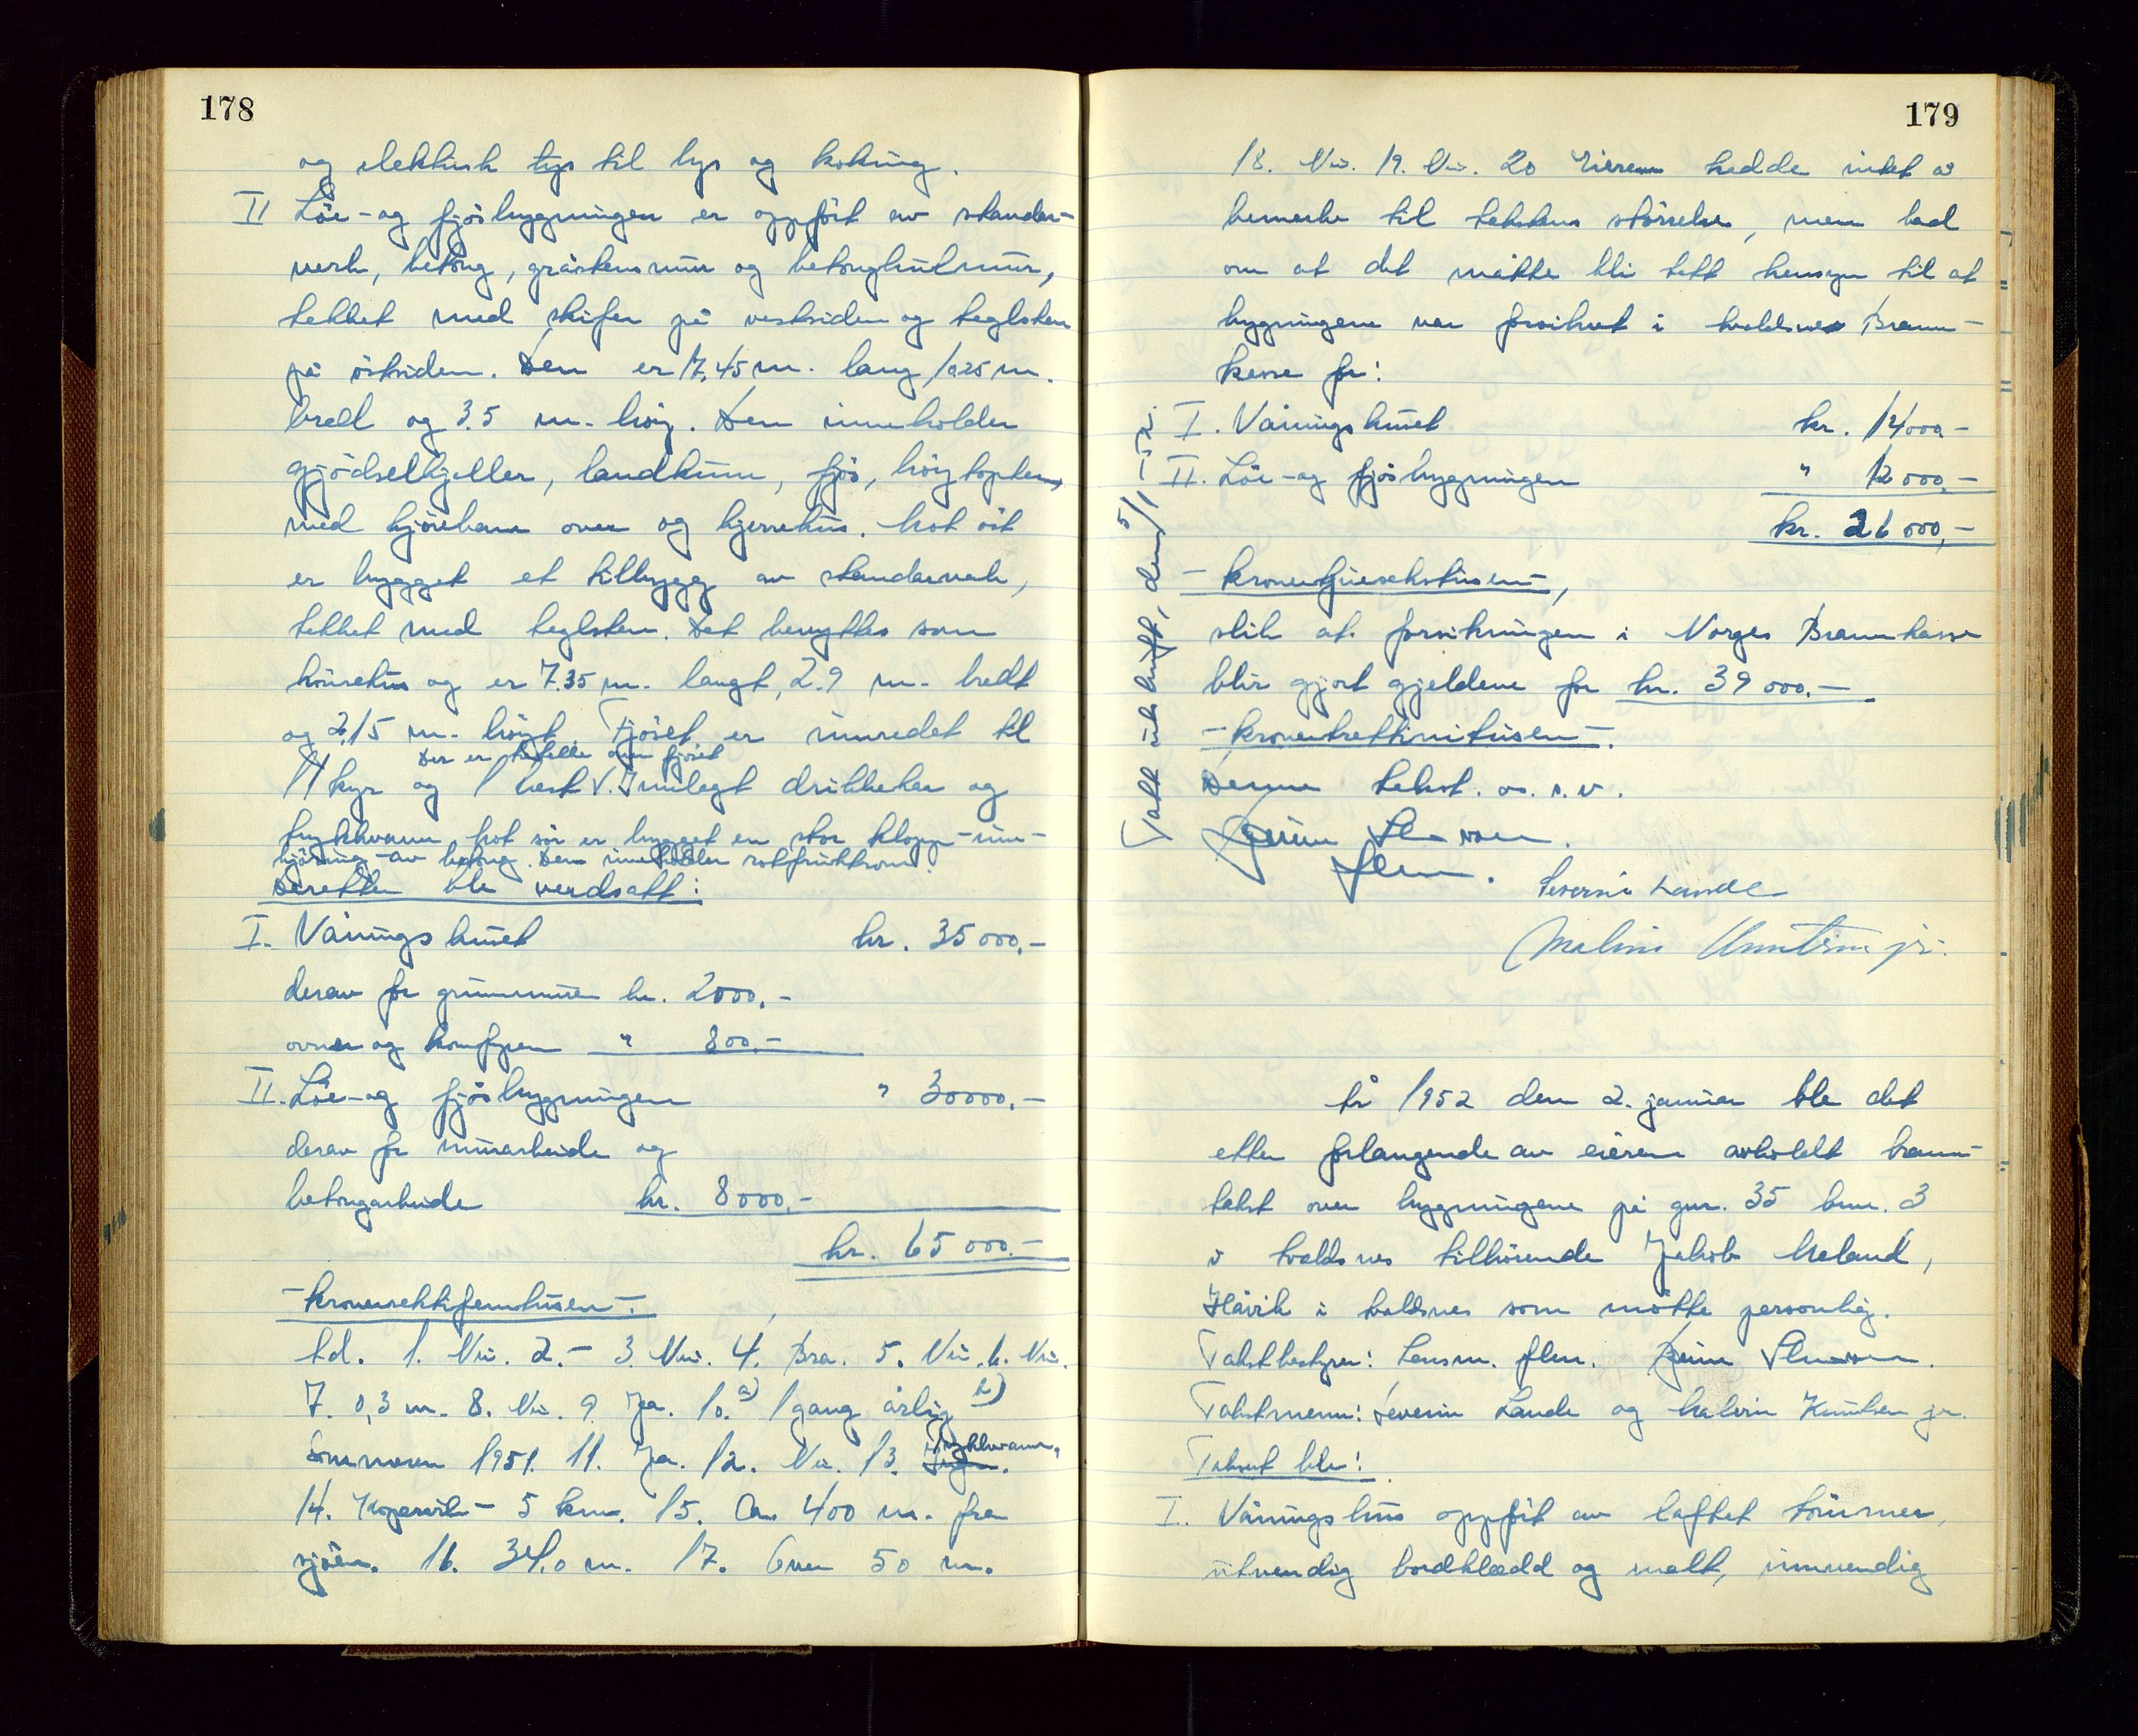 178
og elektrisk lys til lys og koking.
II Löe- og fjösbygningen er oppfört av standar-
verk, betong, gråstensmur og betonghulmur,
tekket med skifer på vestsiden og teglsten
på östsiden. Den er 17,45 m. lang, 10.25 m.
bred og 3.5 m. höy. Den inneholder
gjödselkjeller, landkum, fjös, höytopter,
med kjörebane over og kjerrehus. Mot öst
er bygget et tilbygg av standarverk,
tekket med teglsten. Det benyttes som
hönsehus og er 7.35 m. langt, 2.9 m. bredt
og 2,15 m. höyt. Fjöset er innredet til
Der er hefelle over fjöset
11 kyr og 1 hest V. Innlagt drikkekar og
trykkvann. Mot sör er bygget en stor klopp - inn-
kjöring - av betong. Den inneholder rotfruktrom.
Deretter ble verdsatt:
I. Våningshuset kr. 35 000.-
derav for grunnmuren kr. 2000.-
ovner og komfyren " 800.-
II. Löe- og fjösbygningen " 30000.-
derav for murarbeide og
betongarbeide kr. 8000.-
kr. 65 000.-
- kronersekstifemtusen -.
Ad. 1. Nei. 2. - 3. Nei. 4. Bra. 5. Nei. 6. Nei.
7. 0,3 m. 8. Nei. 9. Ja. 10. a) 1 gang årlig b)
Sommeren 1951. 11. Ja. 12. Nei. 13. Trykkvann.
14. Kopervik - 5 km. 15. Ca. 400 m. fra
sjöen. 16. 34.0 m. 17. Over 50 m.
179
18. Nei. 19. Nei. 20 Eieren hadde intet å
bemerke til takstens störrelse, men bad
om at det måtte bli tatt hensyn til at
bygningene var forsikret i Avaldsnes Brann-
kasse for:
I. Våningshuset kr. 14000.-
II. Löe- og fjösbygningen " 12 000.-
kr. 26 000,-
- kronertjuesekstusen -,
slik at forsikringen i Norges Brannkasse
blir gjort gjeldene for kr. 39 000.-
- kronertrettinitusen -.
Denne takst. o. s. v.
Tatt utskrift, den 5/1 - 52.
Severin Lande
Malvin Knutsen jr.
År 1952 den 2. januar ble det
etter forlangende av eieren avholdt brann-
takst over bygningene på gnr. 35 bnr. 3
i Avaldsnes tilhörende Jakob Meland,
Håvik i Avaldsnes som mötte personlig.
Takstbestyrer: Lensm. flm.
Takstmenn: Severin Lande og Malvin Knutsen jr.
Takert ble:
I. Våningshus oppfört av laftet tömmer,
utvendig bordkledd og malt, innvendig